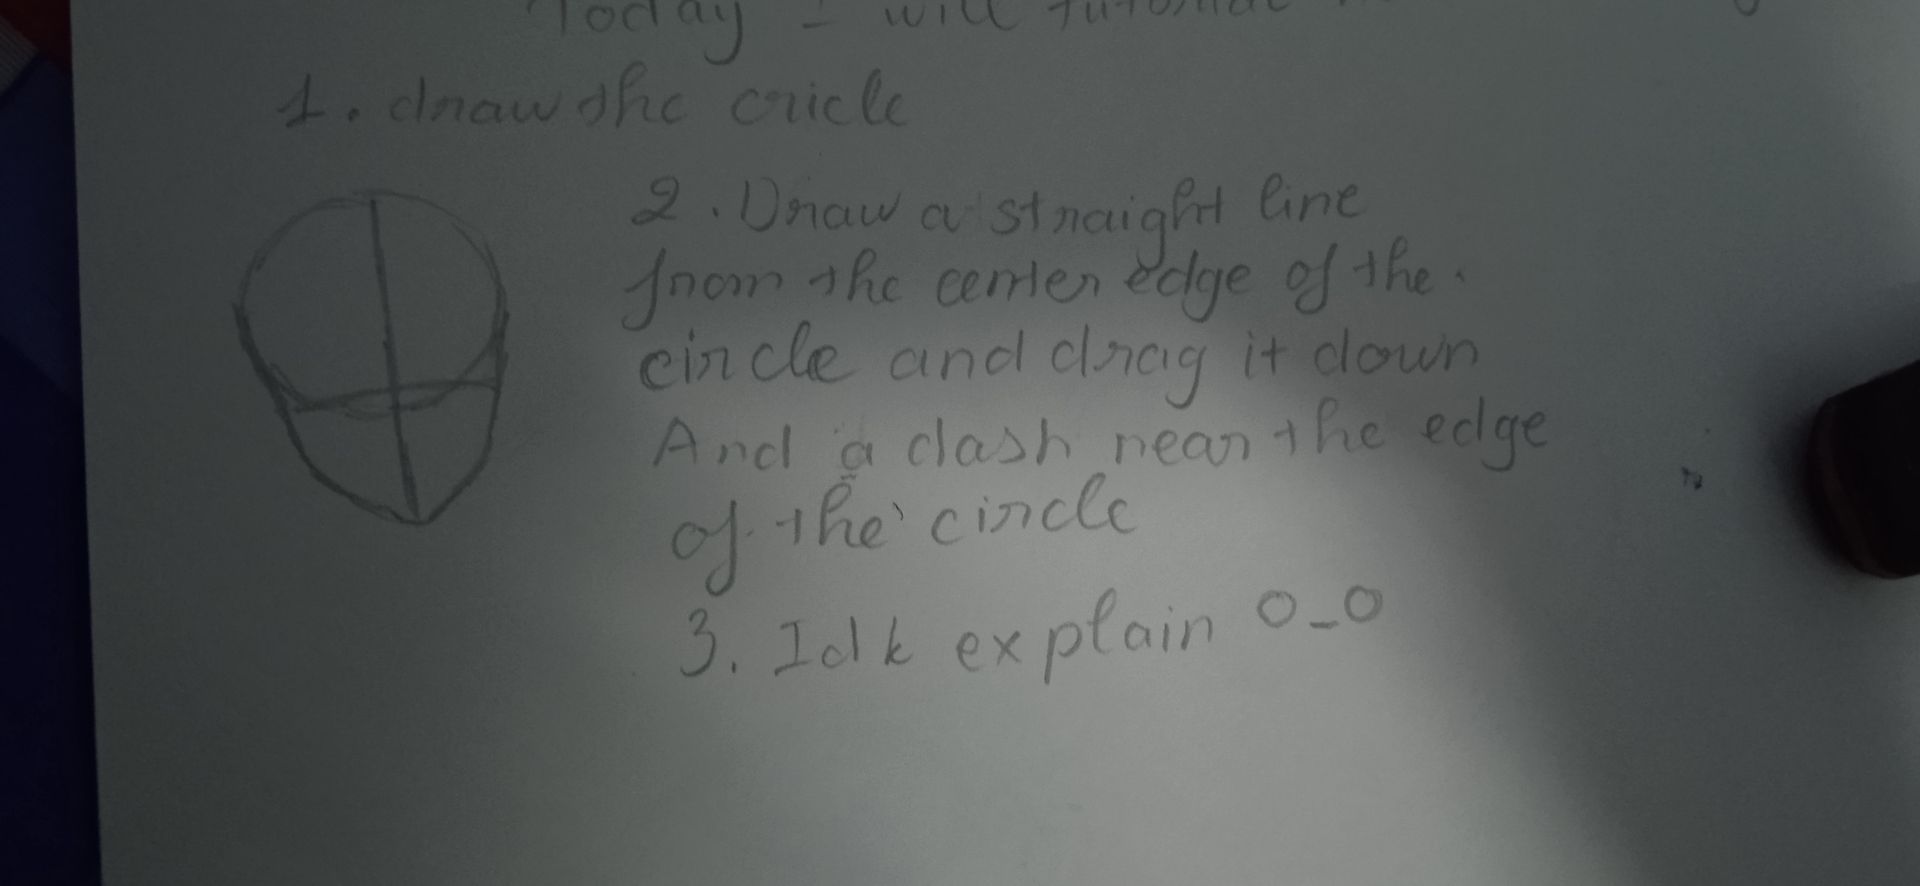 Today I will tutorial
1. draw the cricle
2. Draw a straight line
from the center edge of the
circle and drag it down
And a dash near the edge
of the circle
3. Idk explain O_O